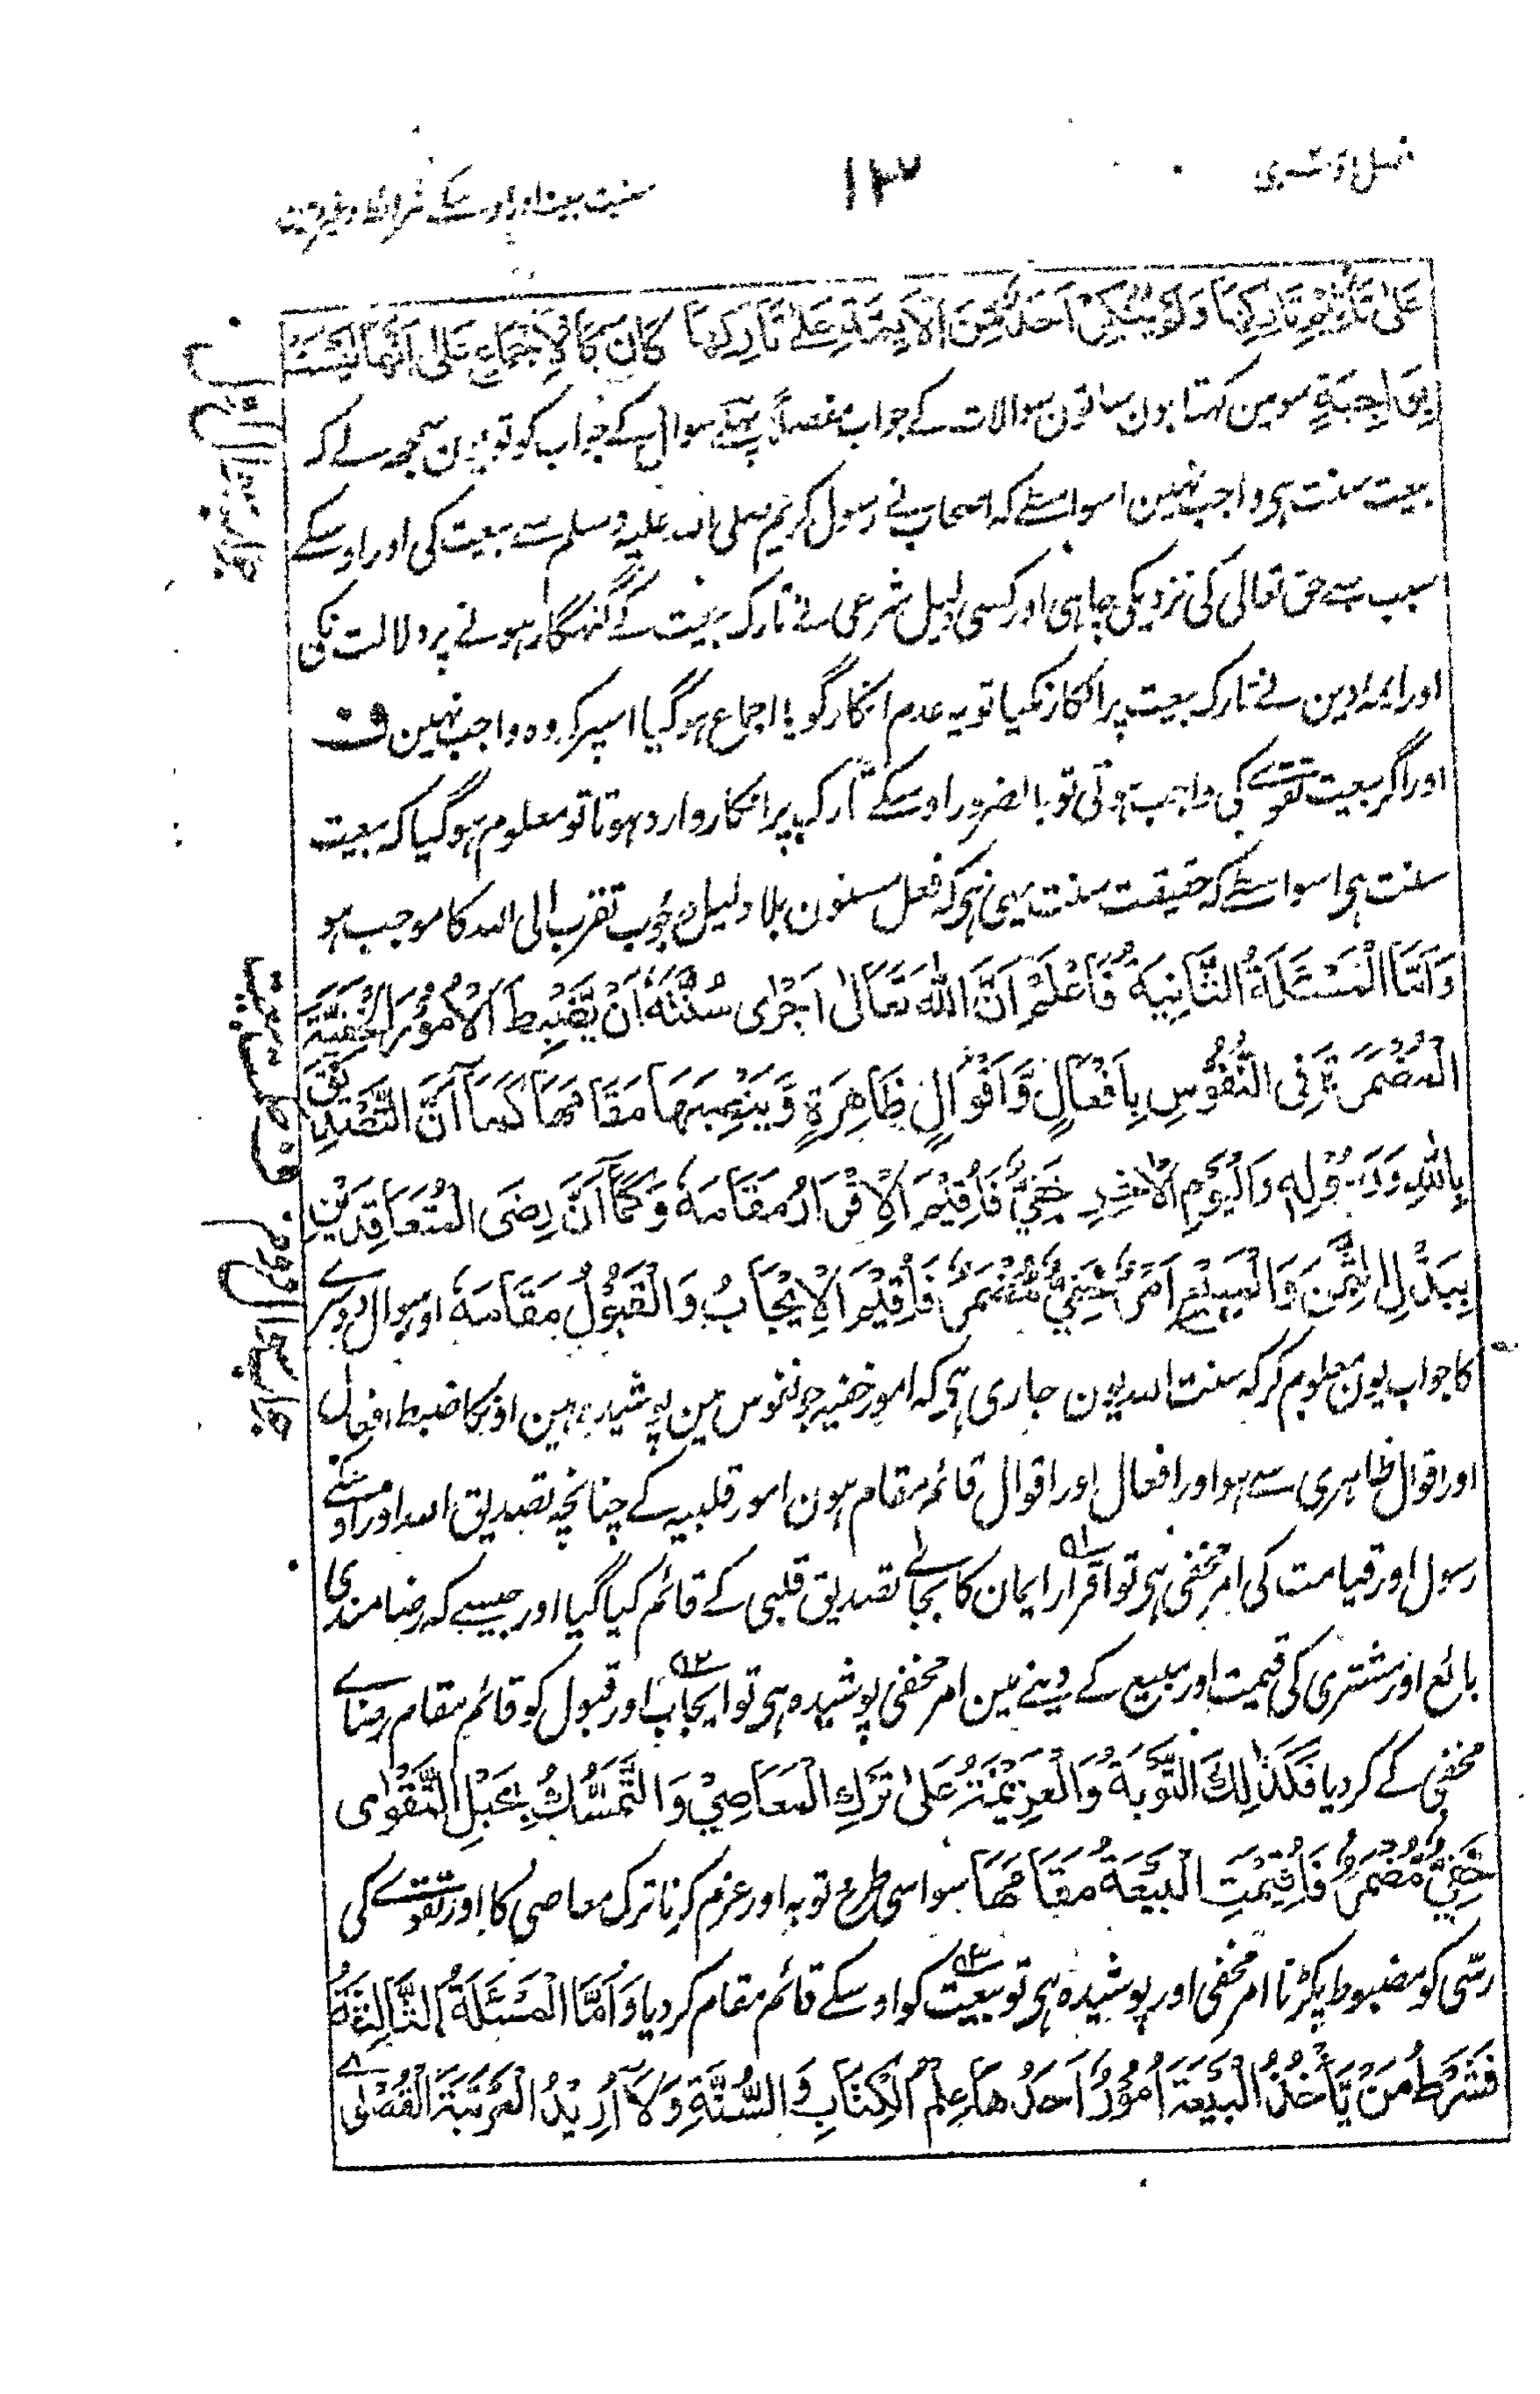 فصل دوسری
۱۳
سنیت بیعت اور اوسکے شرائط وغیرہ مین
عَلٰی تَأْثِیْمِ تَارِکِهَا وَلَمْ یُنْکِرْ اَحَدٌ مِّنَ الْاَئِمَّةِ عَلٰے تَارِکِهَا کَانَ کَالْاِجْمَاعِ عَلٰی اَنَّهَا لَیْسَتْ
بِوَاجِبَةٍ سو مین کہتا ہون ساتون سوالات کے جواب مفصلاً پہلے سوال کے جواب کو تو یون سمجھ لے کہ
بیعت سنت ہی واجب نہین اسواسطے کہ اصحاب نے رسول کریم صلی اللہ علیہ وسلم سے بیعت کی اور اوسکے
سبب سے حق تعالی کی نزدیکی چاہی اور کسی دلیل شرعی نے تارک بیعت کے گنہگار ہونے پر دلالت نکی
اور ایمہ دین نے تارک بیعت پر انکار نکیا تو یہ عدم انکار گویا اجماع ہوگیا اسپر کہ وہ واجب نہین ف
اور اگر بیعت تقوے کی واجب ہوتی تو بالضرور اوسکے تارک پر انکار وارد ہوتا تو معلوم ہوگیا کہ بیعت
سنت ہی اسواسطے کہ حقیقت سنت یہی ہی کہ فعل مسنون بلا دلیل وجوب تقرب الی اللہ کا موجب ہو
وَاَمَّا الْمَسْئَلَةُ الثَّانِیَةُ فَاعْلَمْ اَنَّ اللّٰهَ تَعَالٰی اَجْرٰی سُنَّتَهٗ اَنْ یَّضْبِطَ الْاُمُوْرَ الْخَفِیَّةَ
الْمُضْمَرَةَ فِی النُّفُوْسِ بِاَفْعَالٍ وَّاَقْوَالٍ ظَاهِرَةٍ وَّیَنْصِبَهَا مَقَامَهَا کَمَا اَنَّ التَّصْدِیْقَ
بِاللّٰهِ وَرَسُوْلِهٖ وَالْیَوْمِ الْاٰخِرِ خَفِیٌّ فَاُقِیْمَ الْاِقْرَارُ مَقَامَهٗ وَکَمَا اَنَّ رِضَی الْمُتَعَاقِدَیْنِ
بِبَذْلِ الثَّمَنِ وَالْمَبِیْعِ اَمْرٌ خَفِیٌّ مُّضْمَرٌ فَاُقِیْمَ الْاِیْجَابُ وَالْقَبُوْلُ مَقَامَهٗ اور سوال دوسرے
کا جواب یون معلوم کر کہ سنت اللہ یون جاری ہی کہ امور خفیہ جو نفوس مین پوشیدہ ہین اونکا ضبط افعال
اور اقوال ظاہری سے ہو اور افعال اور اقوال قائم مقام ہون امور قلبیہ کے چنانچہ تصدیق اللہ اور اوسکے
رسول اور قیامت کی امر مخفی ہی تو اقرار ایمان کا بجاے تصدیق قلبی کے قائم کیا گیا اور جیسے کہ رضامندی
بائع اور مشتری کی قیمت اور مبیع کے دینے مین امر مخفی پوشیدہ ہی تو ایجاب اور قبول کو قائم مقام رضاے
مخفی کے کردیا فَکَذٰلِكَ التَّوْبَةُ وَالْعَزِیْمَةُ عَلٰی تَرْكِ الْمَعَاصِیْ وَالتَّمَسُّكُ بِحَبْلِ التَّقْوٰی
خَفِیٌّ مُّضْمَرٌ فَاُقِیْمَتِ الْبَیْعَةُ مَقَامَهَا سو اسی طرح توبہ اور عزم کرنا ترک معاصی کا اور تقوے کی
رسّی کو مضبوط پکڑنا امر مخفی اور پوشیدہ ہی تو بیعت کو اوسکے قائم مقام کردیا وَاَمَّا الْمَسْئَلَةُ الثَّالِثَةُ
فَشَرْطُ مَنْ یَّاْخُذُ الْبَیْعَةَ اُمُوْرٌ اَحَدُهَا عِلْمُ الْکِتَابِ وَالسُّنَّةِ وَلَا اُرِیْدُ الْمَرْتَبَةَ الْقُصْوٰے
جواب سوال اول
جواب سوال دوم